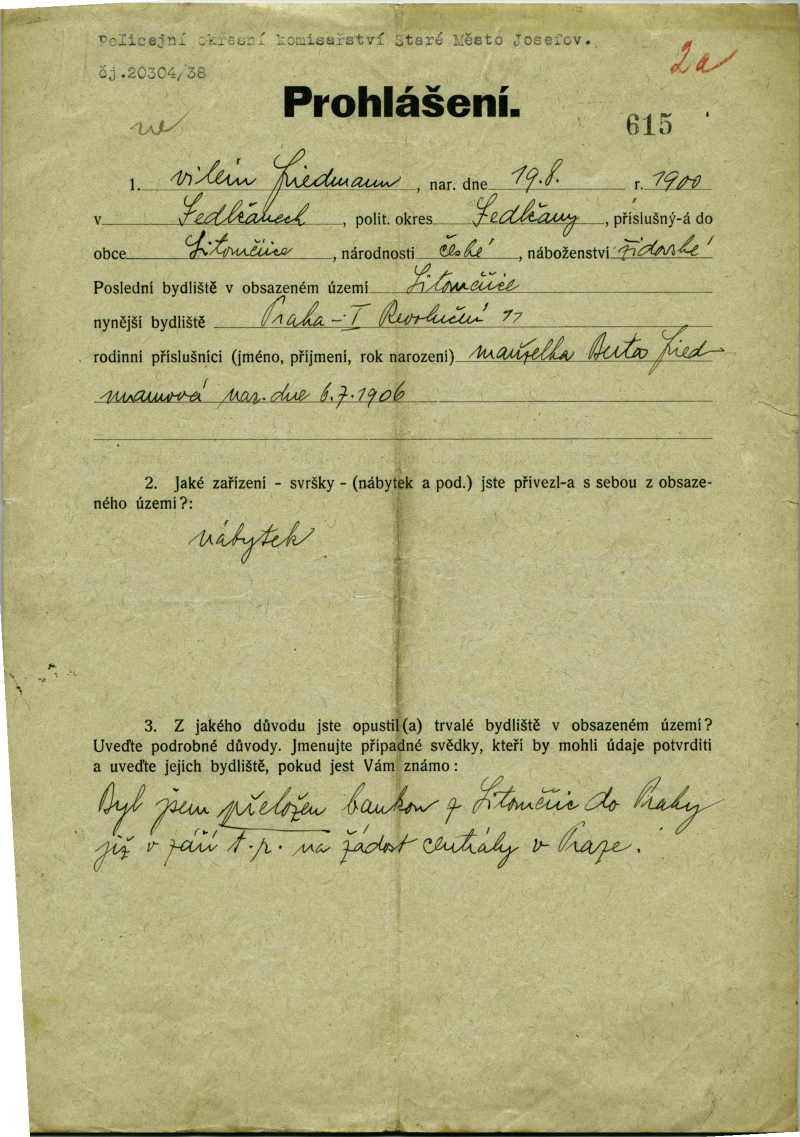 Policejní okresní komisařství Staré Město Josefov.
čj.20304/38
2a
Prohlášení.
ne
615
1. Vilém Friedmann, nar. dne 19.8. r. 1900
v Sedlčanech, polit. okres Sedlčany, příslušný-á do
obce Litoměřice, národnosti české, náboženství židovské
Poslední bydliště v obsazeném území Litoměřice
nynější bydliště Praha - I Revoluční
rodinní příslušníci (jméno, příjmení, rok narození) manželka Berta Fried-
mannová nar. dne 6.7.1906
2. Jaké zařízení - svršky - (nábytek a pod.) jste přivezl-a s sebou z obsaze-
ného území?:
nábytek
3. Z jakého důvodu jste opustil(a) trvalé bydliště v obsazeném území?
Uveďte podrobné důvody. Jmenujte případné svědky, kteří by mohli údaje potvrditi
a uveďte jejich bydliště, pokud jest Vám známo:
Byl jsem přeložen bankou z Litoměřic do Prahy
již v září t.r. na žádost centrály v Praze.